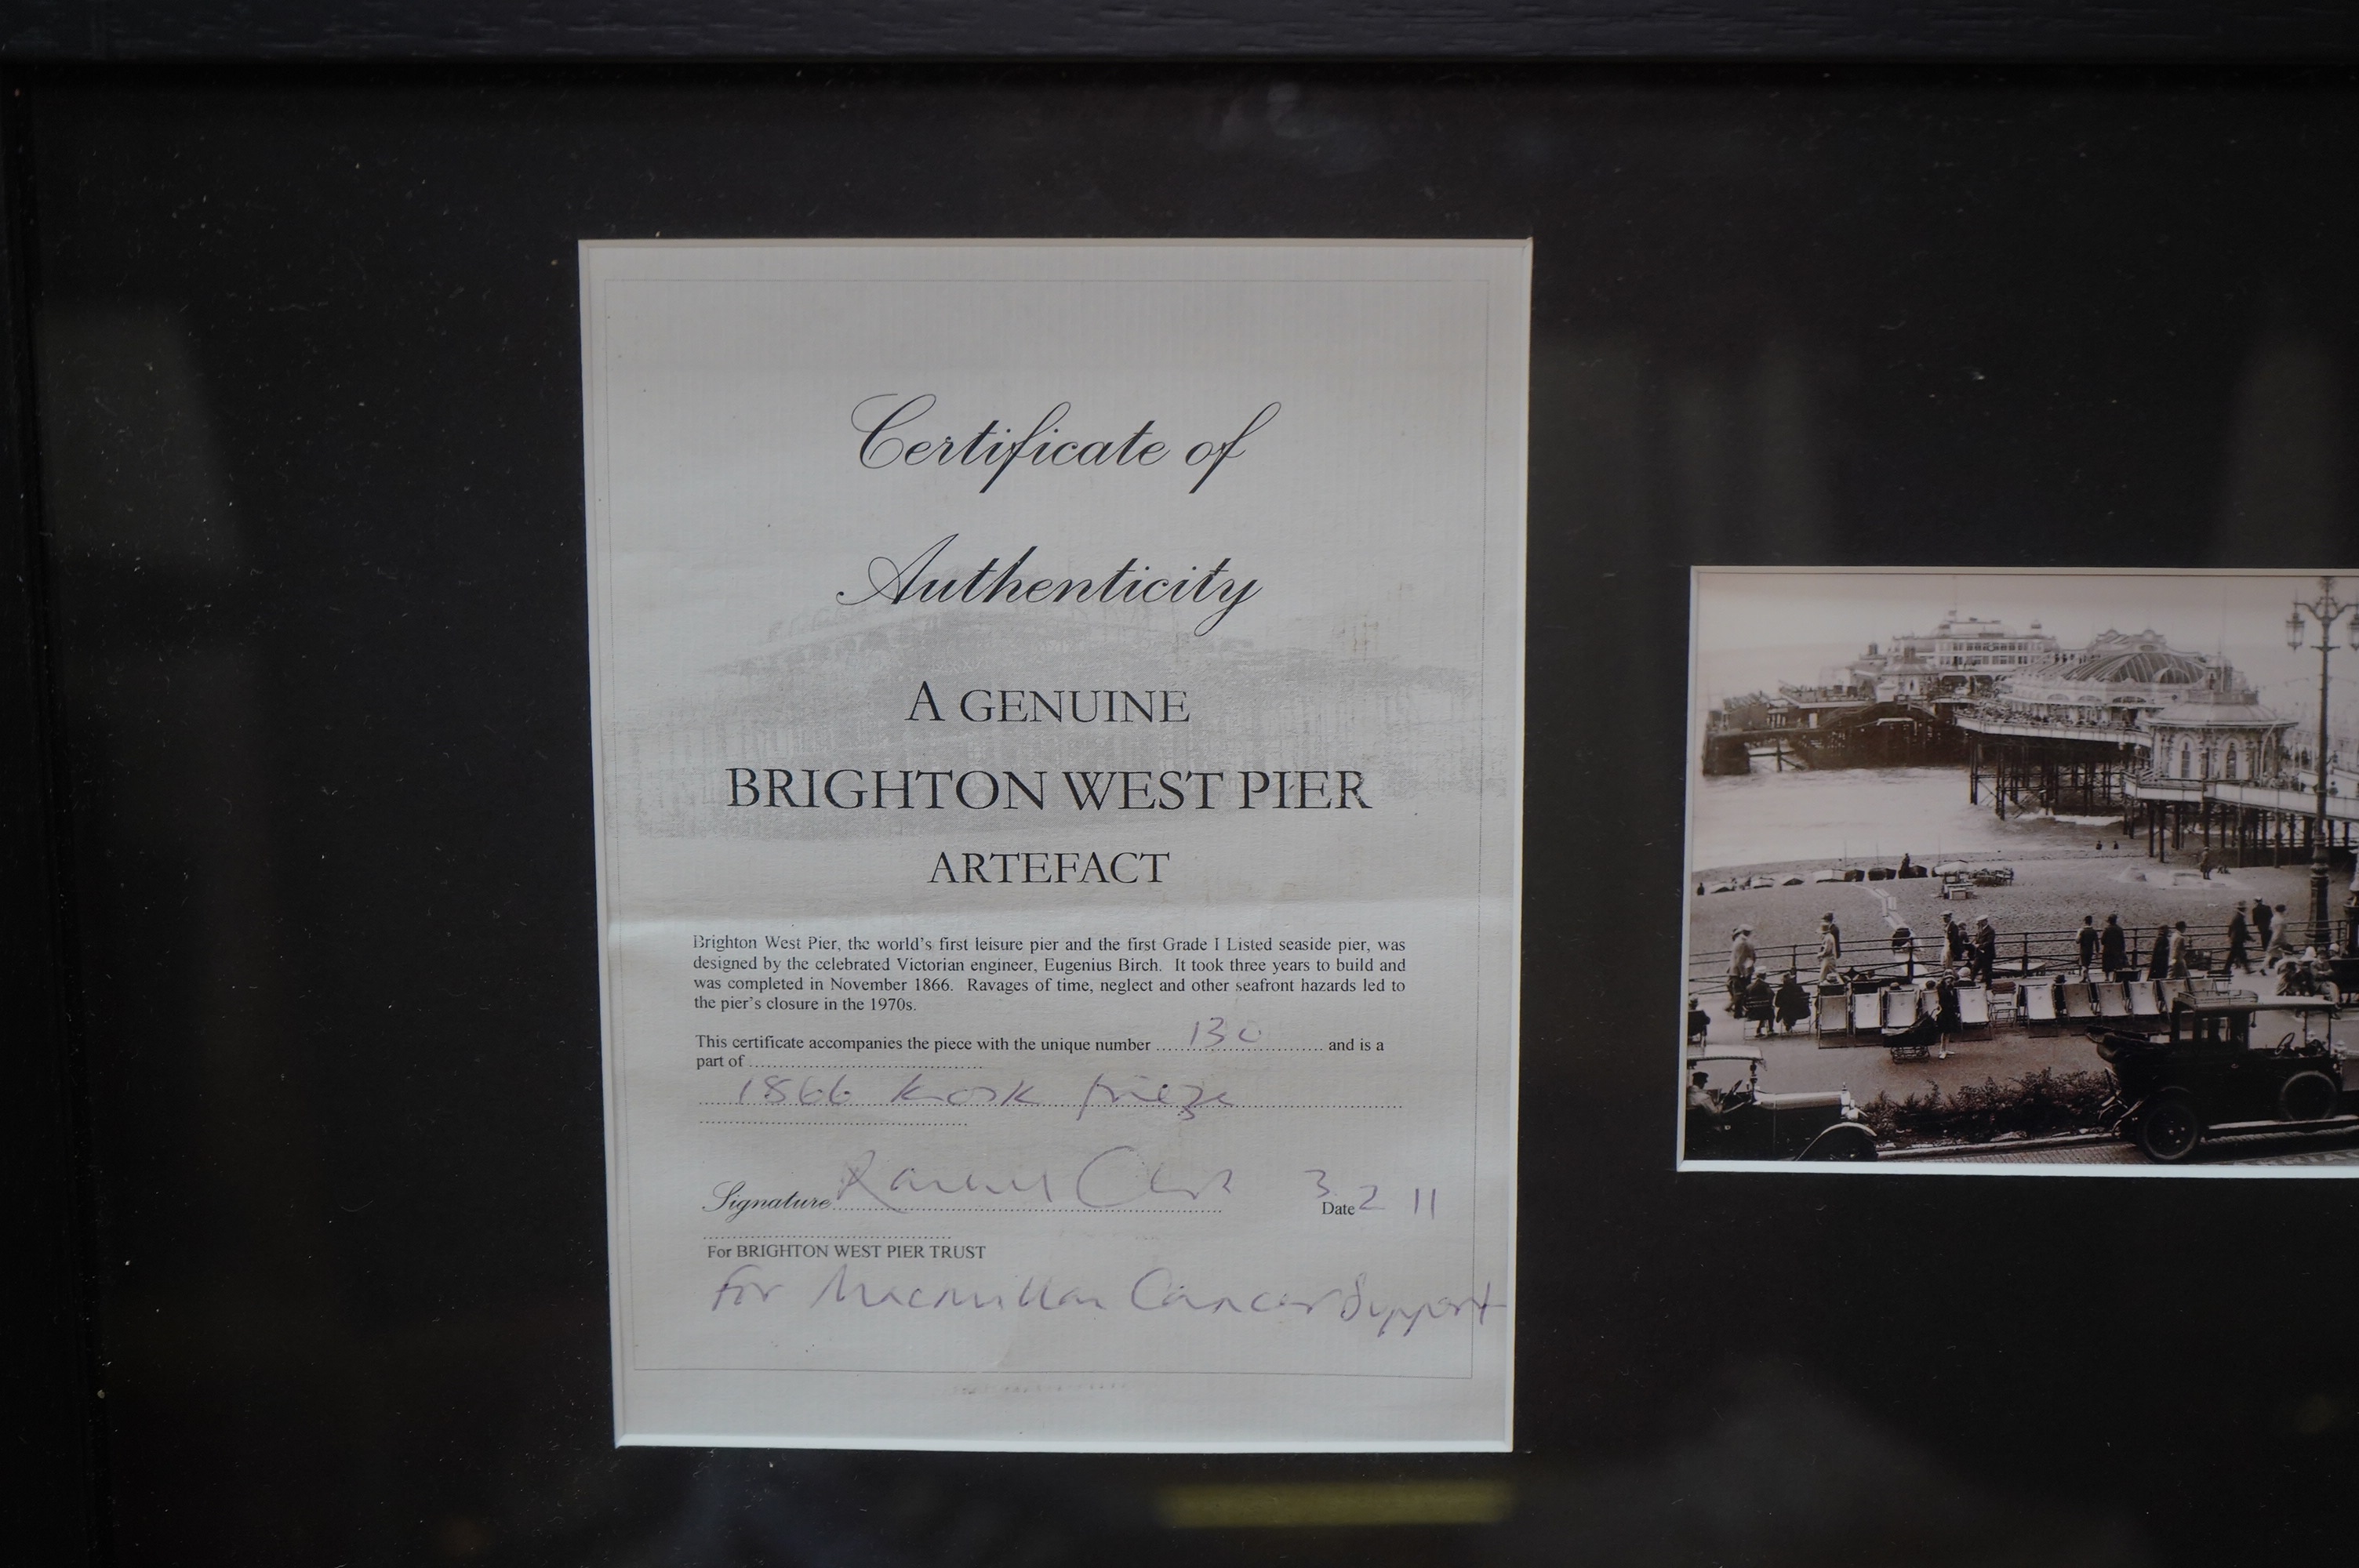 Certificate of
Authenticity
A GENUINE
BRIGHTON WEST PIER
ARTEFACT
Brighton West Pier, the world's first leisure pier and the first Grade I Listed seaside pier, was
designed by the celebrated Victorian engineer, Eugenius Birch. It took three years to build and
was completed in November 1866. Ravages of time, neglect and other seafront hazards led to
the pier's closure in the 1970s.
This certificate accompanies the piece with the unique number ......130............ and is a
part of ....................................................
1866 kiosk frieze
Signature Rachel Clark 3 Date 2 11
For BRIGHTON WEST PIER TRUST
For Macmillan Cancer Support